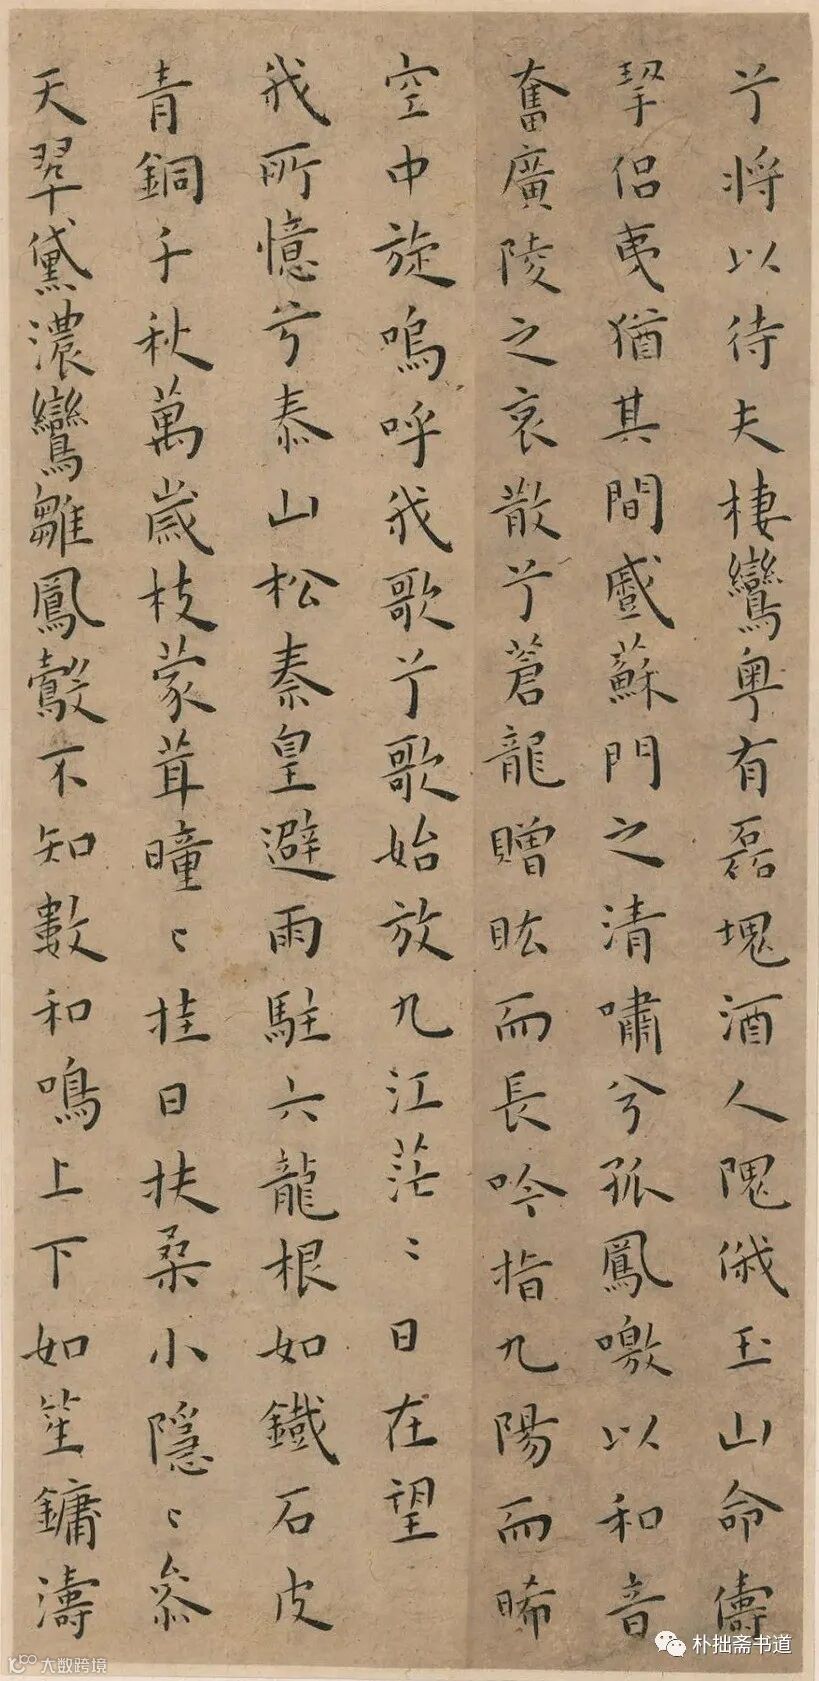 兮將以待夫棲鸞粤有磊塊酒人隗俄玉山命儔
挈侣夷猶其間戚蘇門之清嘯兮孤鳳噭以和音
奮廣陵之哀散兮蒼龍贈盵而長吟指九陽而晞
空中旋嗚呼我歌兮歌始放九江茫〻日在望
我所憶兮泰山松秦皇避雨駐六龍根如鐵石皮
青銅千秋萬歲枝蒙茸曈〻挂日扶桑小隱〻參
天翠黛濃鸞雛鳳鷇不知數和鳴上下如笙鏞濤
朴拙斋书道
大数跨境